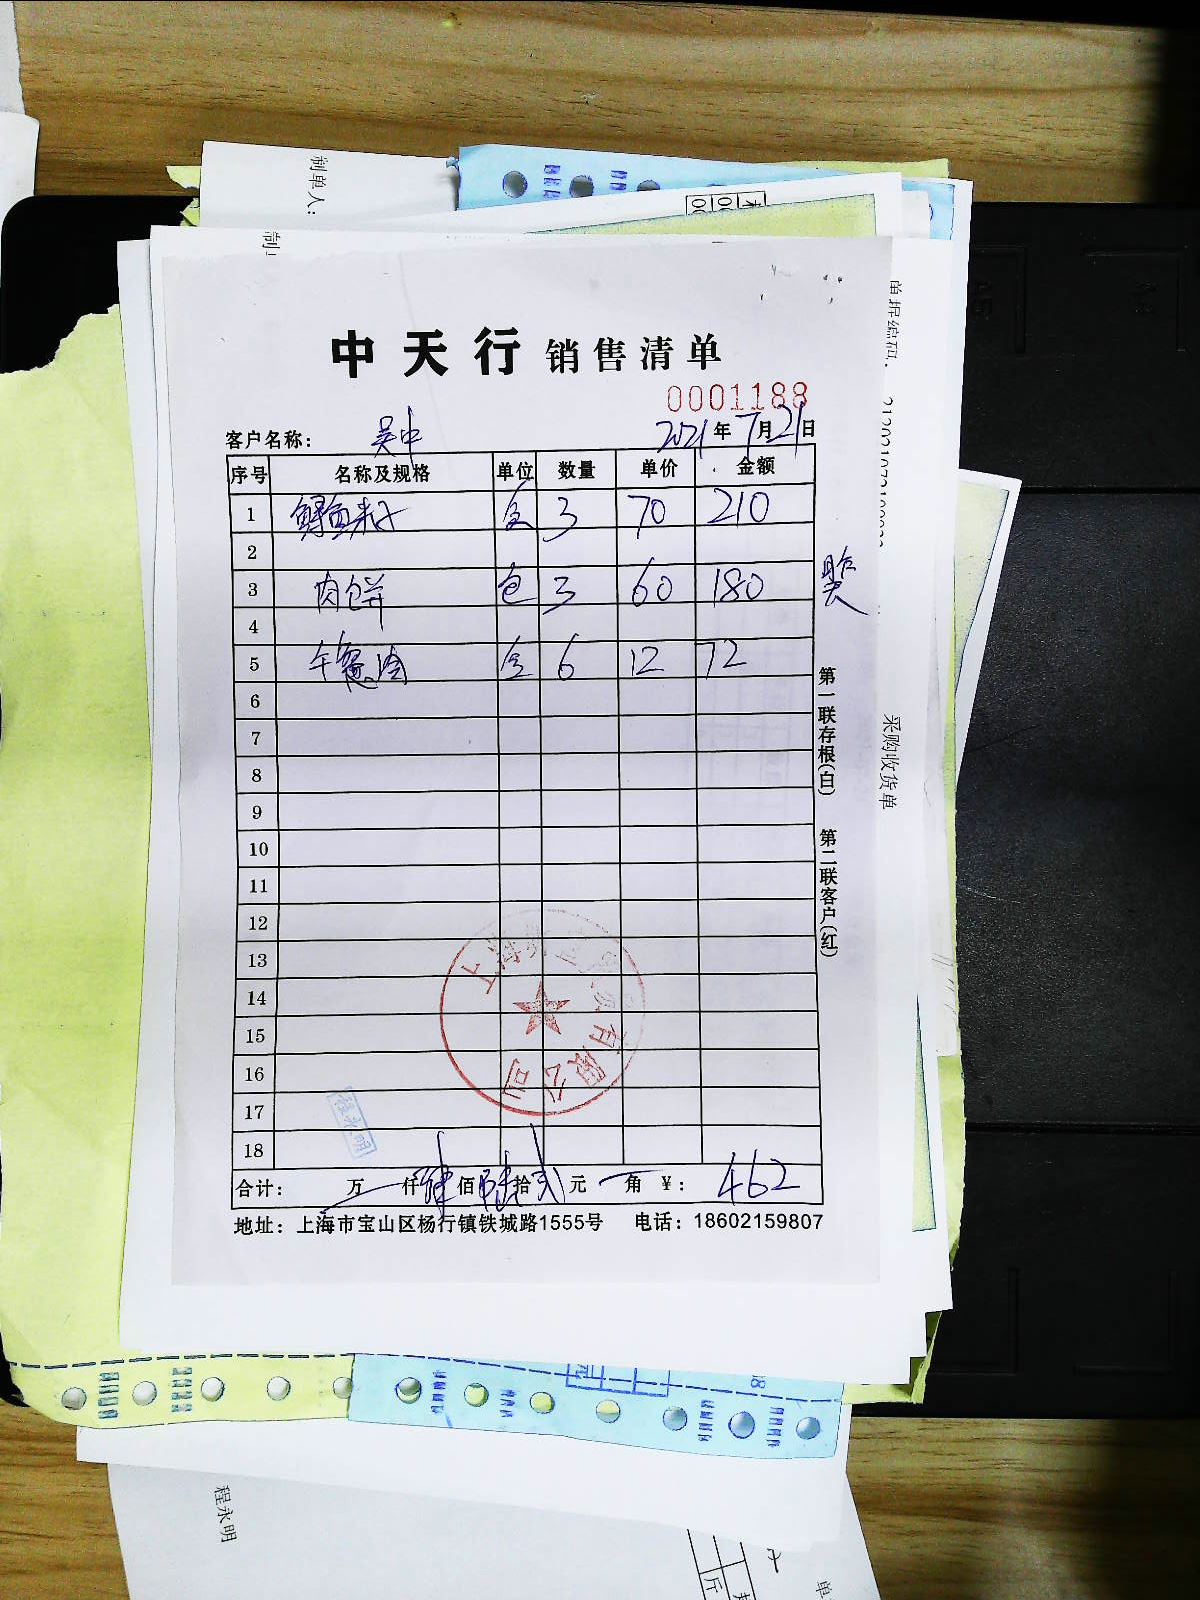 制单人:
制
中天行 销售清单
0001188
客户名称: 吴中 2021年7月21日
序号 名称及规格 单位 数量 单价 金额
1 3 70 210
2
3 肉饼 包 3 60 180
4
5 午餐肉 6 12 72
6
7
8
9
10
11
12
13
14
15
16
17
18
合计: 万 仟肆佰陆拾贰元 角 ¥: 462
地址: 上海市宝山区杨行镇铁城路1555号 电话: 18602159807
第一联存根(白) 第二联客户(红)
上海
有限公司
程永明
单据编码:
采购收货单
程永明
斤